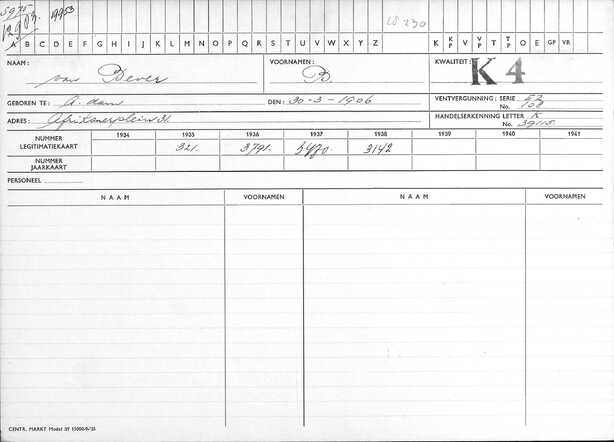 5975
12903. 19953
LO 230
A B C D E F G H I J K L M N O P Q R S T U V W X Y Z K K/P V V/P T T/P O E GP VR
NAAM: van Bever VOORNAMEN: B. KWALITEIT: K 4
GEBOREN TE: A.dam DEN: 30-3-1906 VENTVERGUNNING: SERIE EZ
No. 108
ADRES: Afrikanerplein 31. HANDELSERKENNING LETTER K
No. 39115
1934 1935 1936 1937 1938 1939 1940 1941
NUMMER LEGITIMATIEKAART 321. 3791. 3470. 3142
NUMMER JAARKAART
PERSONEEL
NAAM VOORNAMEN NAAM VOORNAMEN
CENTR. MARKT Model 39 15000-9-'35